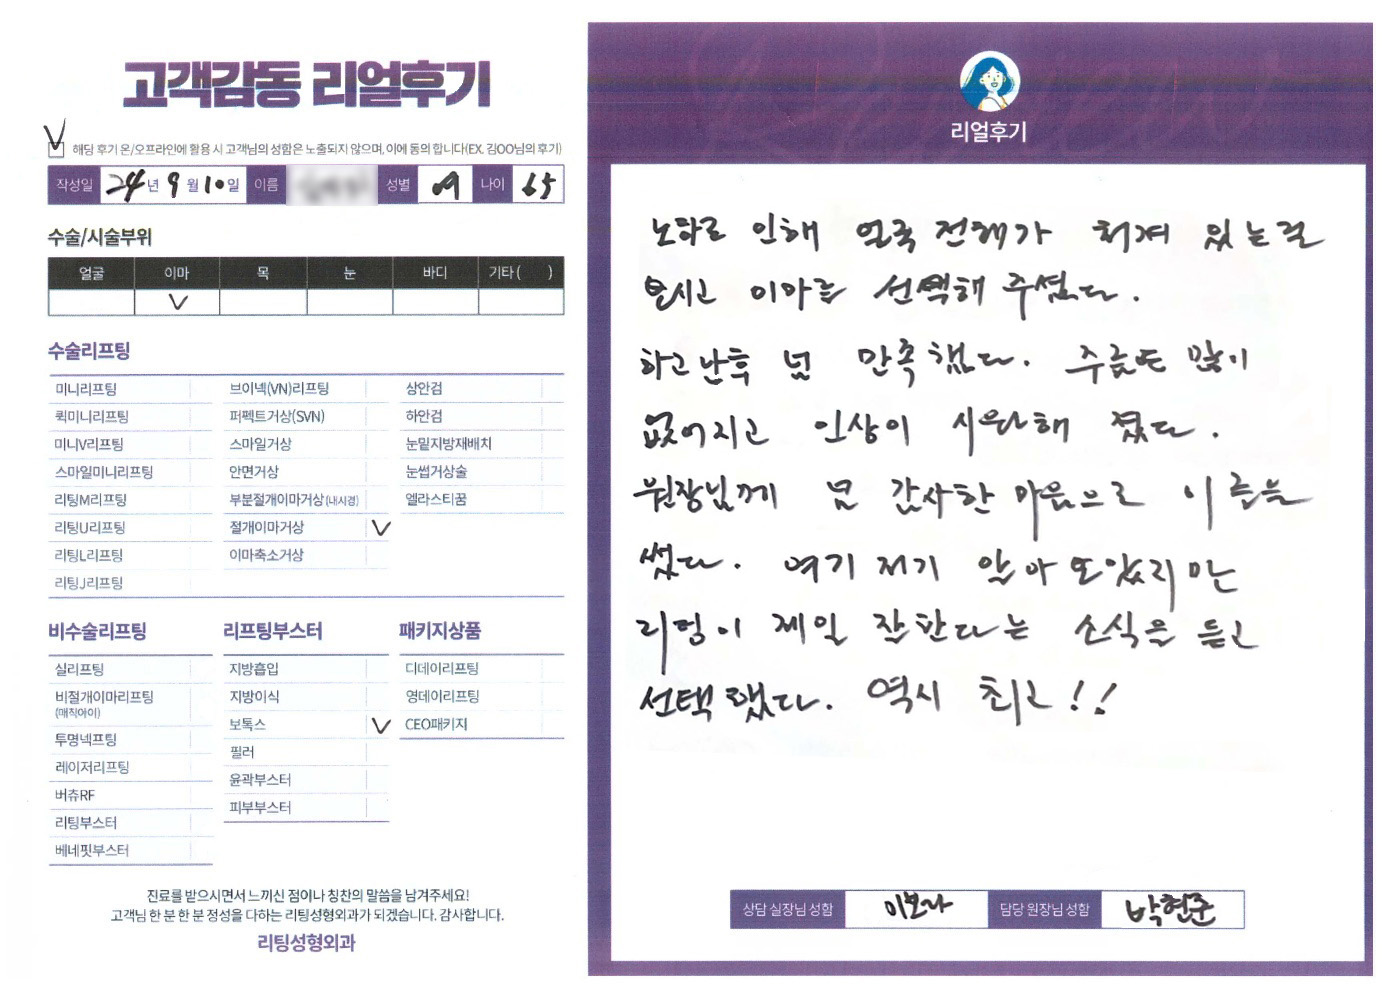 고객감동 리얼후기
해당 후기 온/오프라인에 활용 시 고객님의 성함은 노출되지 않으며, 이에 동의 합니다(EX. 김OO님의 후기)
작성일 24년 9월 10일 이름 성별 여 나이 65
수술/시술부위
얼굴 이마 목 눈 바디 기타 ( )
수술리프팅
미니리프팅 브이넥(VN)리프팅 상안검
퀵미니리프팅 퍼펙트거상(SVN) 하안검
미니V리프팅 스마일거상 눈밑지방재배치
스마일미니리프팅 안면거상 눈썹거상술
리팅M리프팅 부분절개이마거상(내시경) 엘라스티꿈
리팅U리프팅 절개이마거상
리팅L리프팅 이마축소거상
리팅J리프팅
비수술리프팅 리프팅부스터 패키지상품
실리프팅 지방흡입 디데이리프팅
비절개이마리프팅 지방이식 영데이리프팅
(매직아이)
보톡스 CEO패키지
투명넥프팅 필러
레이저리프팅 윤곽부스터
버츄RF 피부부스터
리팅부스터
베네핏부스터
진료를 받으시면서 느끼신 점이나 칭찬의 말씀을 남겨주세요!
고객님 한 분 한 분 정성을 다하는 리팅성형외과가 되겠습니다. 감사합니다.
리팅성형외과
리얼후기
노화로 인해 얼굴 전체가 쳐져 있는걸
보시고 이마를 선택해 주셨다.
하고난후 넘 만족했다. 주름도 많이
없어지고 인상이 시원해 졌다.
원장님께 넘 감사한 마음으로 이 글을
썼다. 여기 저기 알아 보았지만
리팅이 제일 잘한다는 소식을 듣고
선택했다. 역시 최고!!
상담 실장님 성함 이보라 담당 원장님 성함 박현준